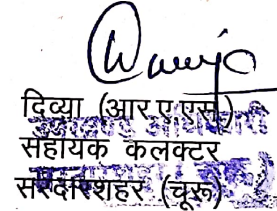 दिव्या (आर.ए.एस.)
सहायक कलक्टर
सरदारशहर (चूरू)